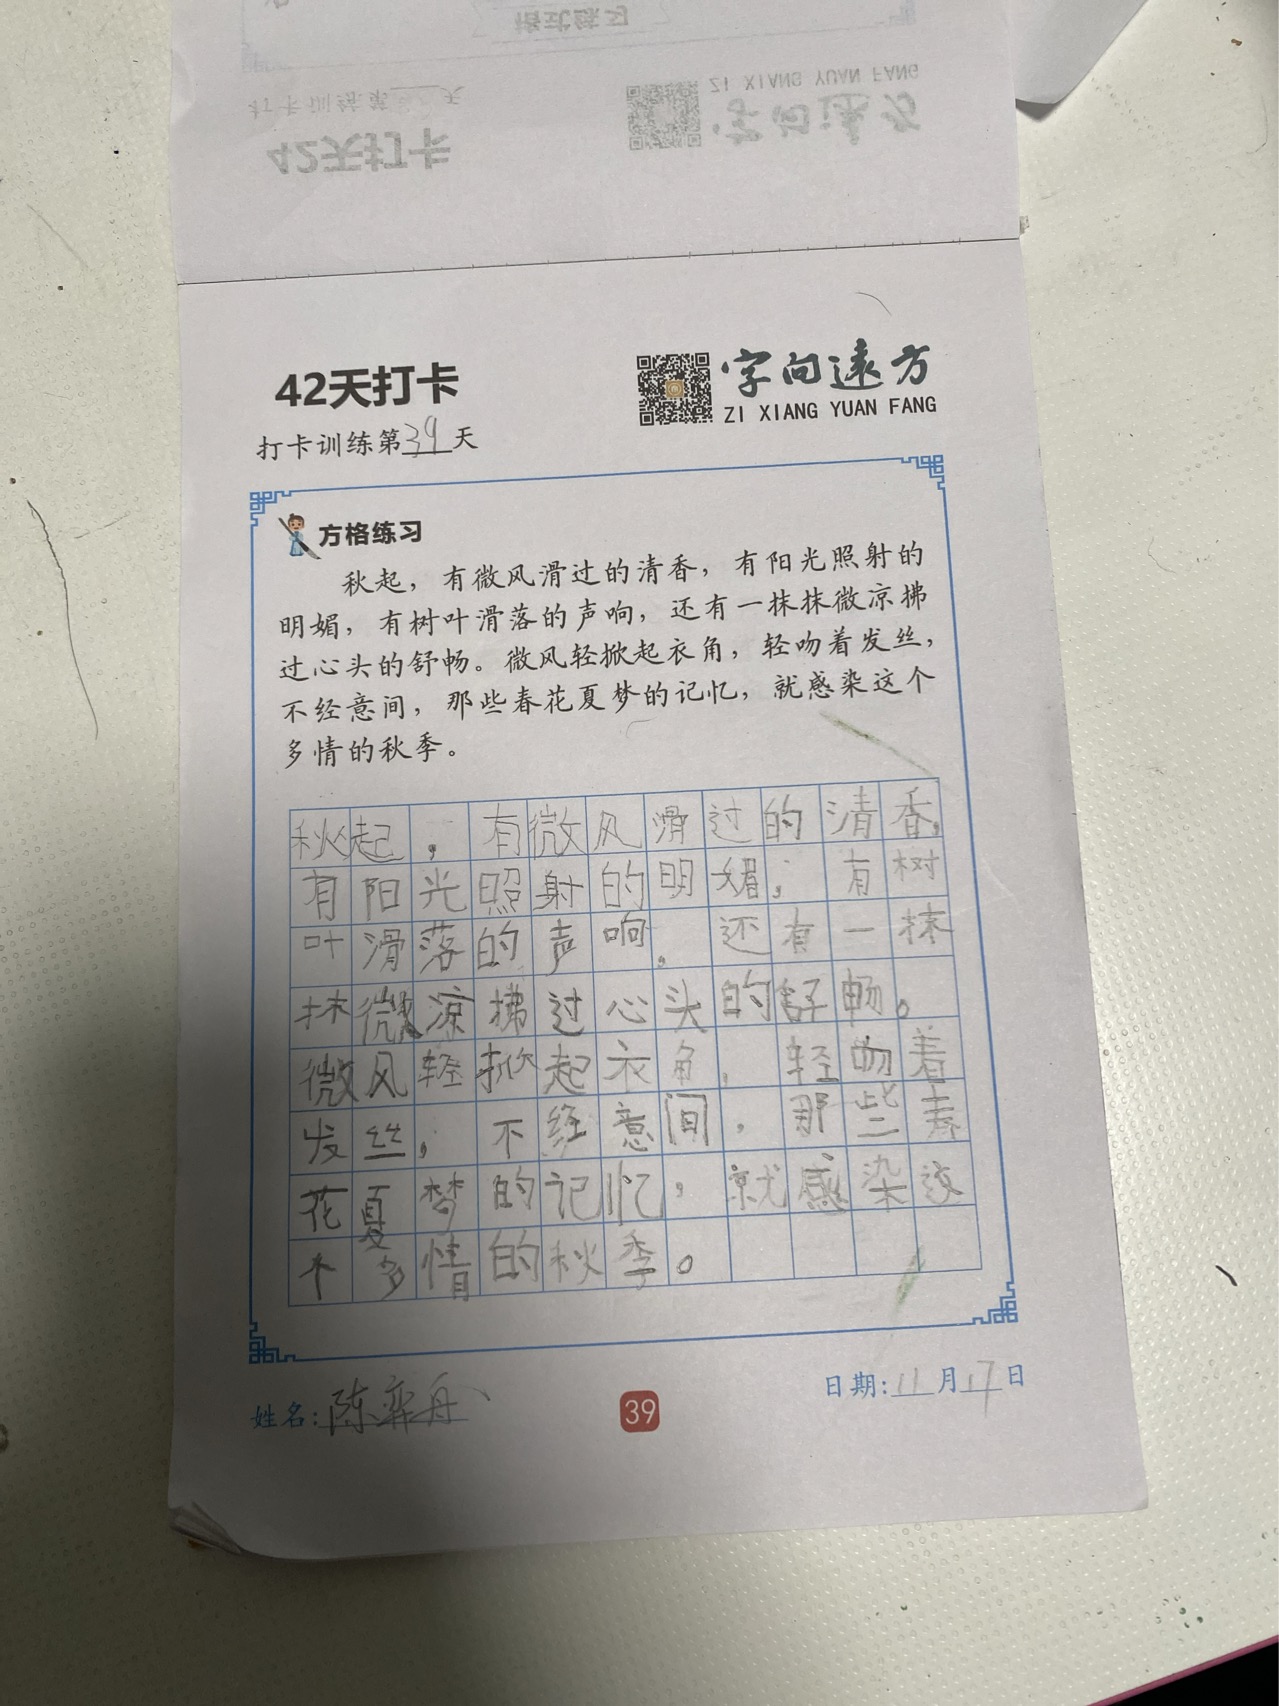 格式练习
ZI XIANG YUAN FANG
字向远方
打卡训练第 天
42天打卡
42天打卡
字向远方
ZI XIANG YUAN FANG
打卡训练第39天
方格练习
秋起，有微风滑过的清香，有阳光照射的
明媚，有树叶滑落的声响，还有一抹抹微凉拂
过心头的舒畅。微风轻掀起衣角，轻吻着发丝，
不经意间，那些春花夏梦的记忆，就感染这个
多情的秋季。
秋起，有微风滑过的清香，
有阳光照射的明媚，有树
叶滑落的声响，还有一抹
抹微凉拂过心头的舒畅。
微风轻掀起衣角，轻吻着
发丝，不经意间，那些春
花夏梦的记忆，就感染这
个多情的秋季。
姓名：陈弈舟
39
日期：11月17日